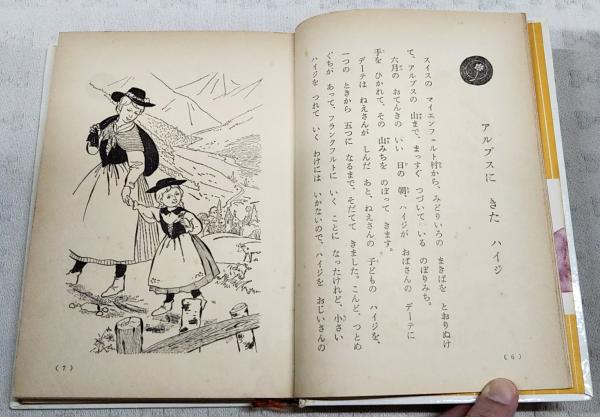 アルプスに きた ハイジ
スイスの マイエンフェルト村から、みどりいろの まきばを とおりぬけ
て、アルプスの 山まで、まっすぐ つづいて いる のぼりみち。
六月の おてんきの いい 日の 朝、ハイジが おばさんの デーテに
手を ひかれて、その 山みちを のぼって きます。
デーテは ねえさんが しんだ あと、ねえさんの 子どもの ハイジを、
一つの ときから 五つに なるまで、そだてて きました。こんど、つとめ
ぐちが あって、フランクフルトに いく ことに なったけれど、小さい
ハイジを つれて いく わけには いかないので、ハイジを おじいさんの
(6)
(7)